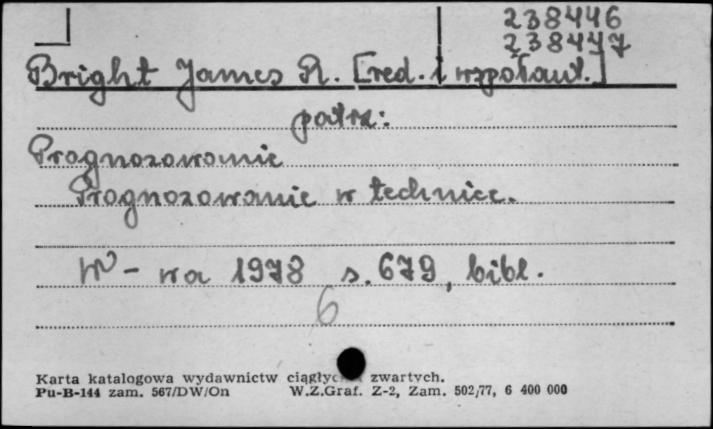 238446
238447
Bright James R. [red. i współaut.]
patrz:
Prognozowanie
Prognozowanie w technice.
W-wa 1978 s. 679, bibl.
6
Karta katalogowa wydawnictw zwartych.
Pu-B-144 zam. 567/DW/On W.Z.Graf. Z-2, Zam. 502/77, 6 400 000